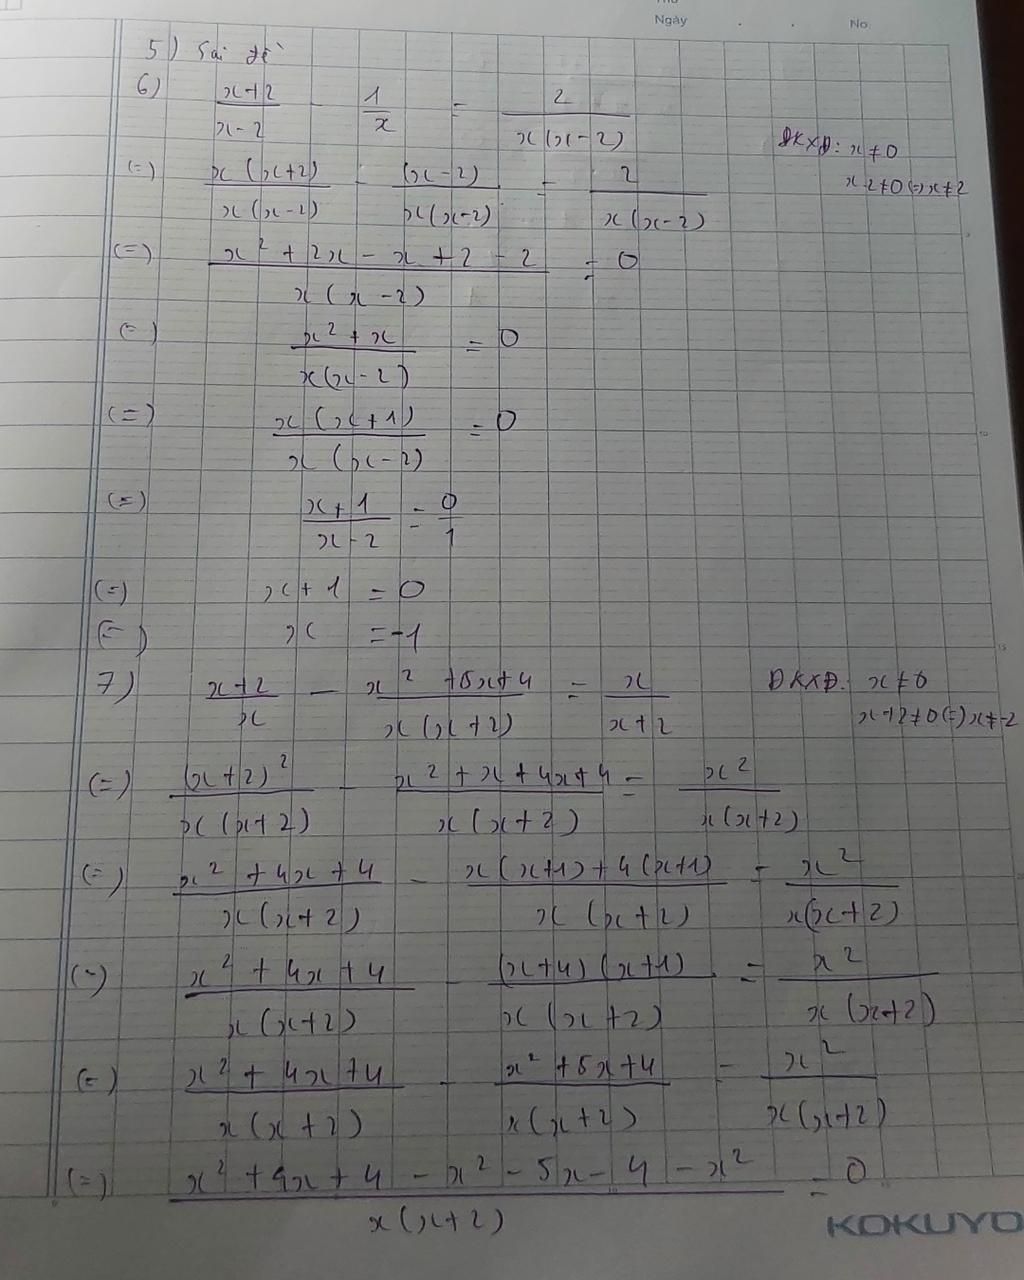 Thứ
Ngày . . No
5) Sai đề
6) (x+2)/(x-2) - 1/x = 2/(x(x-2)) ĐKXĐ: x ≠ 0
x-2≠0 (=) x≠2
(=) x(x+2)/(x(x-2)) - (x-2)/(x(x-2)) = 2/(x(x-2))
(=) (x² + 2x - x + 2 - 2)/(x(x-2)) = 0
(=) (x² + x)/(x(x-2)) = 0
(=) x(x+1)/(x(x-2)) = 0
(=) (x+1)/(x-2) = 0/1
(=) x + 1 = 0
(=) x = -1
7) (x+2)/x - (x² + 5x + 4)/(x(x+2)) = x/(x+2) ĐKXĐ: x ≠ 0
x+2≠0 (=) x≠-2
(=) (x+2)²/(x(x+2)) - (x² + x + 4x + 4)/(x(x+2)) = x²/(x(x+2))
(=) (x² + 4x + 4)/(x(x+2)) - (x(x+1) + 4(x+1))/(x(x+2)) = x²/(x(x+2))
(=) (x² + 4x + 4)/(x(x+2)) - (x+4)(x+1)/(x(x+2)) = x²/(x(x+2))
(=) (x² + 4x + 4)/(x(x+2)) - (x² + 5x + 4)/(x(x+2)) = x²/(x(x+2))
(=) (x² + 4x + 4 - x² - 5x - 4 - x²)/(x(x+2)) = 0
KOKUYO